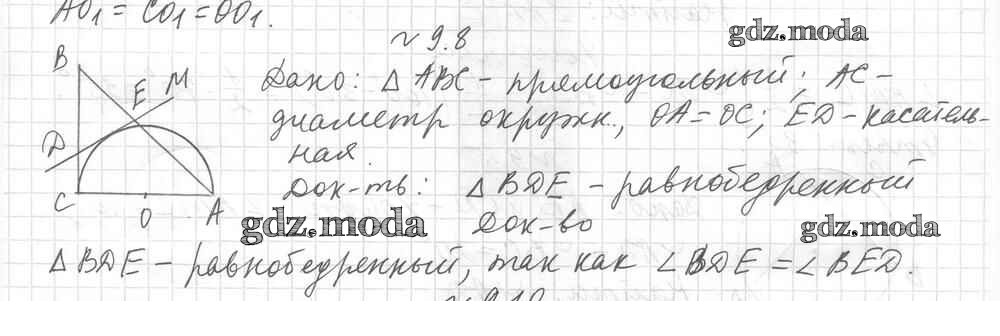 AO₁ = CO₁ = OO₁.
№ 9.8
gdz.moda
B
E M
D
C
O
A
Дано: △ ABC - прямоугольный; AC -
диаметр окружн., OA = OC; ED - касатель-
ная.
Док-ть: △ BDE - равнобедренный
Док-во
gdz.moda
gdz.moda
△ BDE - равнобедренный, так как ∠ BDE = ∠ BED.